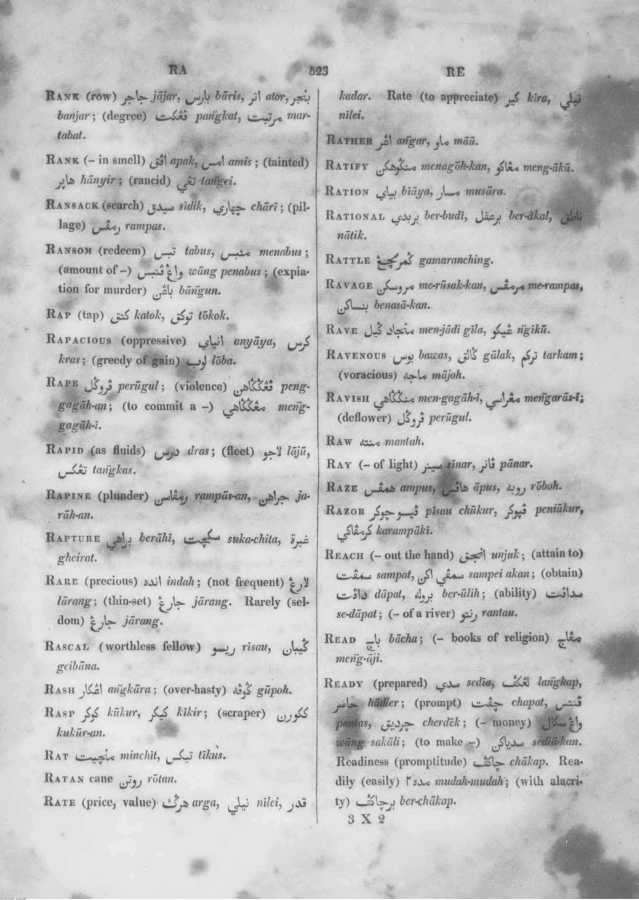 RA
523
RE
RANK (row) جاجر jājar, بارس bāris, اتر ator, بنجر
banjar; (degree) ڤڠكت pañgkat, مرتبت mar-
tabat.
RANK (– in smell) اڤق apak, امس amis; (tainted)
هاڽر hānyir; (rancid) تڠي tañgei.
RANSACK (search) سيدق sīdik, چهاري chārī; (pil-
lage) رمڤس rampas.
RANSOM (redeem) تبس tabus, منبس menabus;
(amount of –) واڠ ڤنبس wāng penabus; (expia-
tion for murder) باڠن bāñgun.
RAP (tap) كتق katok, توكق tōkok.
RAPACIOUS (oppressive) انياي anyāya, كرس
kras; (greedy of gain) لوب lōba.
RAPE ڤروڬل perūgul; (violence) ڤڠڬڬاهن peng-
gagāh-an; (to commit a –) مڠڬڬاهي meñg-
gagāh-ī.
RAPID (as fluids) درس dras; (fleet) لاجو lājū,
تڠكس tañgkas.
RAPINE (plunder) رمڤاسن rampās-an, جراهن ja-
rāh-an.
RAPTURE براهي berāhī, سكچيت suka-chita, غيرة
gheirat.
RARE (precious) انده indah; (not frequent) لارڠ
lārang; (thin-set) جارڠ jārang. Rarely (sel-
dom) جارڠ jārang.
RASCAL (worthless fellow) ريسو risau, ڬيبان
geibāna.
RASH اڠكار añgkāra; (over-hasty) ڬوڤه gūpoh.
RASP كوكر kūkur, كيكر kīkir; (scraper) ككورن
kukūr-an.
RAT منچيت minchīt, تيكس tīkus.
RATAN cane روتن rōtan.
RATE (price, value) هرڬ arga, نيلي nīleī, قدر
kadar. Rate (to appreciate) كير kīra, نيلي
nīleī.
RATHER اڠر añgar, ماو māū.
RATIFY منڬوهكن menagōh-kan, مڠاكو meng-ākū.
RATION بياي bīāya, مسار musāra.
RATIONAL بربدي ber-budī, برعقل ber-ākal, ناطق
nātik.
RATTLE ڬمرنچڠ gamaranching.
RAVAGE مروسكن me-rūsak-kan, مرمڤس me-rampas,
بنساكن benasā-kan.
RAVE منجاد ڬيل men-jādī gīla, ڠيڬو ñgīkū.
RAVENOUS بوس bawas, ڬالق gūlak, تركم tarkam;
(voracious) ماجه mājoh.
RAVISH منڬڬاهي men-gagāh-ī, مڠراسي meñgarās-ī;
(deflower) ڤروڬل perūgul.
RAW منته mantah.
RAY (– of light) سينر sīnar, ڤانر pānar.
RAZE همڤس ampus, هاڤس āpus, روبه rōboh.
RAZOR ڤيسو چوكر pīsau chūkur, ڤڽوكر peniūkur,
كرمڤاكي karampākī.
REACH (– out the hand) انجق unjuk; (attain to)
سمڤت sampat, سمڤي اكن sampeī akan; (obtain)
داڤت dāpat, بروله ber-ūlih; (ability) سداڤت
se-dāpat; (– of a river) رنتو rantau.
READ باچ bācha; (– books of religion) مڠاجي
meñg-āji.
READY (prepared) سدي sedīa, لڠكڤ lañgkap,
حاضر hādler; (prompt) چڤت chapat, ڤنتس
pantas, چرديق cherdēk; (– money) واڠ سكال
wāng sakāli; (to make –) سدياكن sedīa-kan.
Readiness (promptitude) چاكڤ chākap. Rea-
dily (easily) مده٢ mudah-mudah; (with alacri-
ty) برچاكڤ ber-chākap.
3 X 2